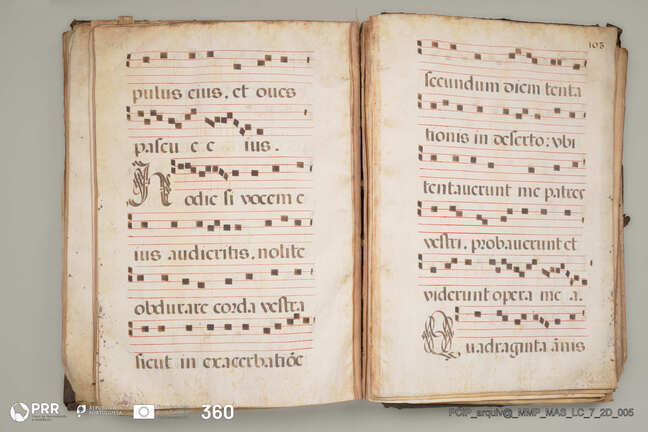 pulus eius, et oues
pascu e e ius.
Hodie si vocem e
ius audieritis, nolite
obdurare corda vestra
sicut in exacerbatiõe
103
secundum diem tenta
tionis in deserto: vbi
tentauerunt me patres
vestri, probauerunt et
viderunt opera me a.
Quadraginta ãnis
PRR
REPÚBLICA
PORTUGUESA
360
PCIP_arquiv@_MMP_MAS_LC_7_2D_005